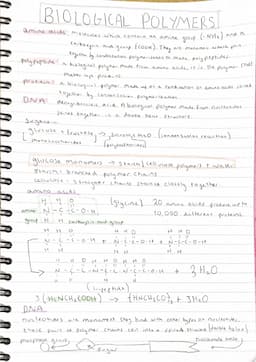 BIOLOGICAL POLYMERS
amino acids: molecules which contain an amine group (-NH2) and a
carboxylic acid group (COOH). They are monomers which join
together by condensation polymerisation to make polypeptides.
polypeptides: a biological polymer made from amino acids, it is the polymer that
makes up proteins.
proteins: a biological polymer made up of a combination of amino acids joined
together by condensation polymerisation.
DNA: deoxyribonucleic acid. A biological polymer made from nucleotides
joined together in a double helix structure.
Sugars
glucose + fructose → (condensation reaction)
monosaccharides
glucose monomers → starch/cellulose polymers + water
starch: branched polymer chains
cellulose: straighter chains stacked closely together
amino acids
H H O
(glycine) 20 amino acids
amine N-C-C-O-H 10,000 different proteins
group H H
H H O H H O H H O
N-C-C-O-H + N-C-C-O-H + N-C-C-O-H
+ 3H2O
3(H2NCH2COOH) → + 3H2O
DNA
nucleotides are monomers they bind with other types of nucleotides
these pairs of polymer chains coil into a spiral structure (double helix)
phosphate group
sugar